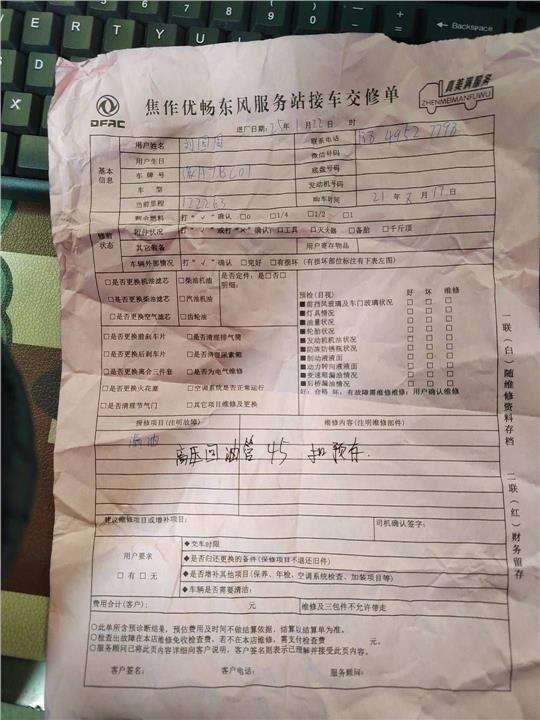 Backspace
E R T Y
DFAC
焦作优畅东风服务站接车交修单
真美满服务
ZHENMEIMANFUWU
进厂日期：25年1月22日 时
基本信息
用户姓名 联系电话
用户生日 微信号码
车牌号 底盘号码
车型 发动机号码
当前里程 122263 购车时间 21年8月17日
修前状态
剩余燃料 打“√”确认 □0 □1/4 □1/2 □1
附件状况 打“√”或打“×”确认：□工具 □灭火器 □备胎 □千斤顶
其它装备 用户寄存物品
车辆外部情况 打“√”确认 □完好 □有损坏（有损坏部位标注有下表左图）
□是否更换机油滤芯 □柴油机油 是否定件：是□否□
□是否更换柴油滤芯 □汽油机油 明细：
□是否更换空气滤芯 □齿轮油
□是否更换前刹车片 □是否清理排气筒
□是否更换后刹车片 □是否清理尿素箱
□是否更换离合三件套 □是否为电气维修
□是否更换火花塞 □空调系统是否正常运行
□是否清理节气门 □其它项目维修及更换
预检（目视） 好 坏 维修
■前挡风玻璃及车门玻璃状况 □ □ □
■灯具情况 □ □ □
■油量状况 □ □ □
■轮胎状况 □ □ □
■发动机机油状况 □ □ □
■防冻防锈瓶状况 □ □ □
■制动液液面 □ □ □
■动力转向液液面 □ □ □
■变速箱漏油情况 □ □ □
■后桥漏油情况 □ □ □
好：合格 坏：有故障需维修维修：用户确认维修
报修项目（注明故障） 维修内容（注明维修部件）
漏油
高压回油管 45 扣预存.
建议维修项目或增补项目： 司机确认签字：
用户要求
□有 □无
◆交车时限
◆是否归还更换的备件（保修项目不退还旧件）
◆是否增补其他项目（保养、年检、空调系统检查、加装项目等）
◆车辆是否需要清洁：
费用合计（客户）： 元 维修及三包件不允许带走
○此单所含预诊断结果，预估费用及时间不做结算依据，结算以结算单为准。
○检查出故障在本店维修免收检查费，若不在本店维修，需支付检查费 元。
○服务顾问已将此页内容详细向客户说明，客户签名则表示已理解并接受此页内容。
客户签名： 客户电话： 服务顾问：
一联（白）随维修资料存档
二联（红）财务留存